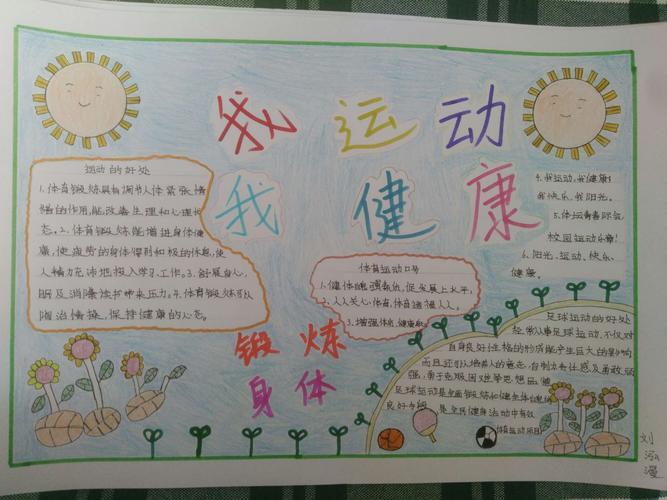 我运动
我健康
运动的好处
1.体育锻炼具有调节人体紧张情
绪的作用,能改善生理和心理状
态。2.体育锻炼能增进身体健
康,使疲劳的身体得到积极的休息,使
人精力充沛地投入学习、工作。3.舒展身心,
眠及消除读书带来压力。4.体育锻炼可以
陶冶情操,保持健康的心态。
体育运动口号
1.健体魄强素质,促发展上水平。
2.人人关心体育,体育造福人人。
3.增强体质,健康
4.我运动,我健康!
我快乐,我阳光。
5.体坛青春际会,
校园运动乐章!
6.阳光、运动、快乐、
健康。
锻炼
身体
足球运动的好处
经常从事足球运动,不仅对
自身良好性格的形成能产生巨大的影响
而且还可以培养人的意志、自制力、责任感及勇敢顽
强、勇于克服困难等思想品德
足球运动是全面锻炼和健全体魄的
良好手段 是全民健身活动中有效
体育运动项目
刘
泓
漫